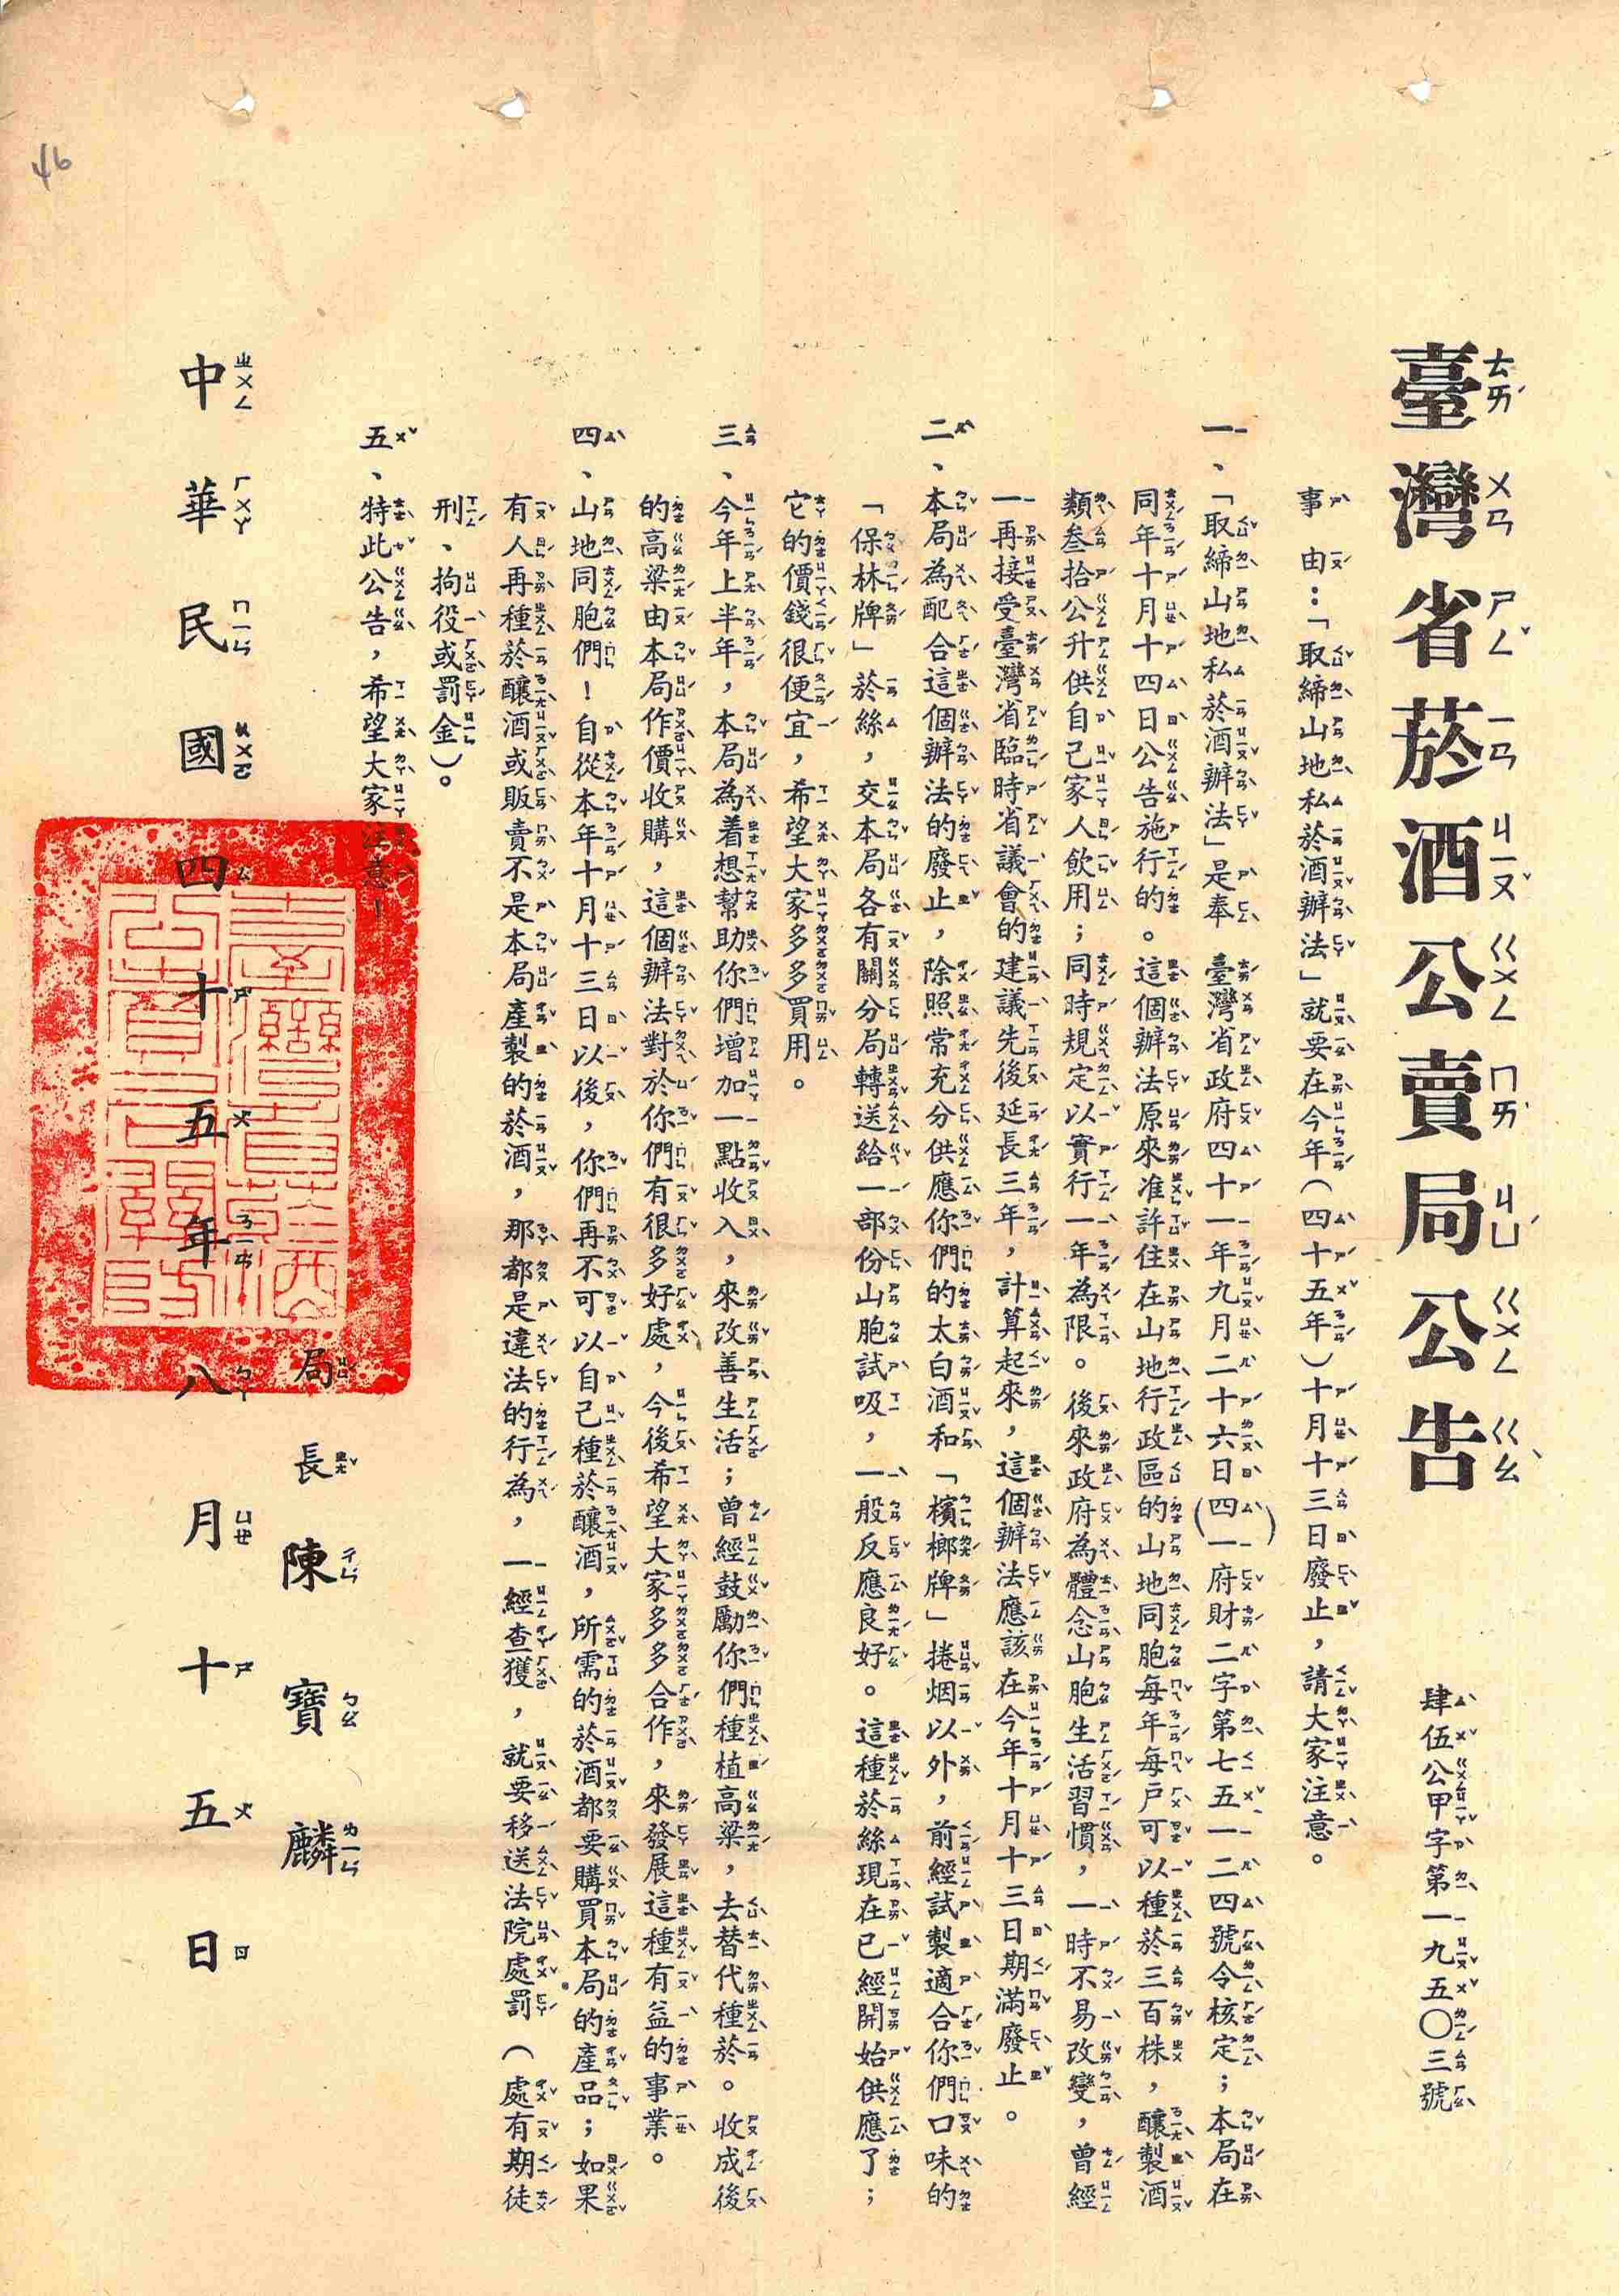 臺灣省菸酒公賣局公告
肆伍公甲字第一九五〇三號
事由：「取締山地私菸酒辦法」就要在今年（四十五年）十月十三日廢止，請大家注意。
一、「取締山地私菸酒辦法」是奉 臺灣省政府四十一年九月二十六日(四一)府財二字第七五一二四號令核定；本局在
同年十月十四日公告施行的。這個辦法原來准許住在山地行政區的山地同胞每年每戶可以種菸三百株，釀製酒
類叁拾公升供自己家人飲用；同時規定以實行一年為限。後來政府為體念山胞生活習慣，一時不易改變，曾經
一再接受臺灣省臨時省議會的建議先後延長三年，計算起來，這個辦法應該在今年十月十三日期滿廢止。
二、本局為配合這個辦法的廢止，除照常充分供應你們的太白酒和「檳榔牌」捲烟以外，前經試製適合你們口味的
「保林牌」菸絲，交本局各有關分局轉送給一部份山胞試吸，一般反應良好。這種菸絲現在已經開始供應了；
它的價錢很便宜，希望大家多多買用。
三、今年上半年，本局為着想幫助你們增加一點收入，來改善生活；曾經鼓勵你們種植高粱，去替代種菸。收成後
的高粱由本局作價收購，這個辦法對於你們有很多好處，今後希望大家多多合作，來發展這種有益的事業。
四、山地同胞們！自從本年十月十三日以後，你們再不可以自己種菸釀酒，所需的菸酒都要購買本局的產品；如果
有人再種菸釀酒或販賣不是本局產製的菸酒，那都是違法的行為，一經查獲，就要移送法院處罰（處有期徒
刑、拘役或罰金）。
五、特此公告，希望大家注意！
局長 陳寶麟
中華民國四十五年八月十五日
46